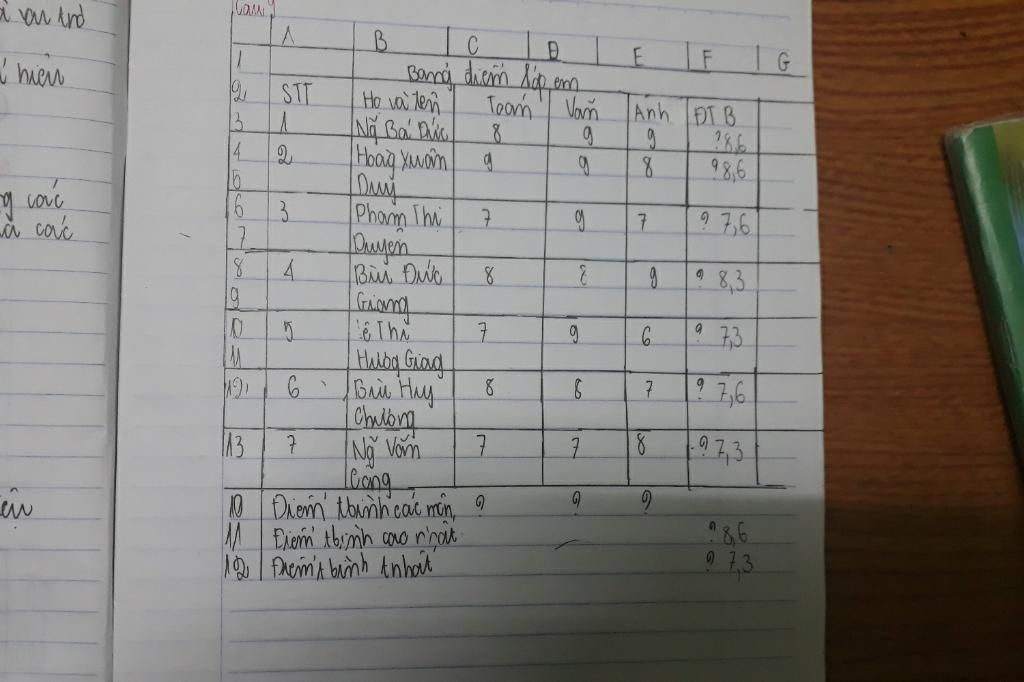 Câu 9
A B C D E F G
1 Bảng điểm lớp em
2 STT Họ và tên Toán Văn Anh ĐTB
3 1 Ng Bá Đức 8 9 9 ?8,6
4 2 Hoàng Xuân 9 9 8 ?8,6
5 Duy
6 3 Phạm Thị 7 9 7 ? 7,6
7 Duyên
8 4 Bùi Đức 8 8 9 ? 8,3
9 Giang
10 5 Lê Thị 7 9 6 ? 7,3
11 Hương Giang
12 6 Bùi Huy 8 8 7 ? 7,6
Chương
13 7 Ng Văn 7 7 8 ? 7,3
Cang
10 Điểm tbình các môn, ? ? ?
11 Điểm tbình cao nhất ? 8,6
12 Điểm tbình tnhất ? 7,3
các
các